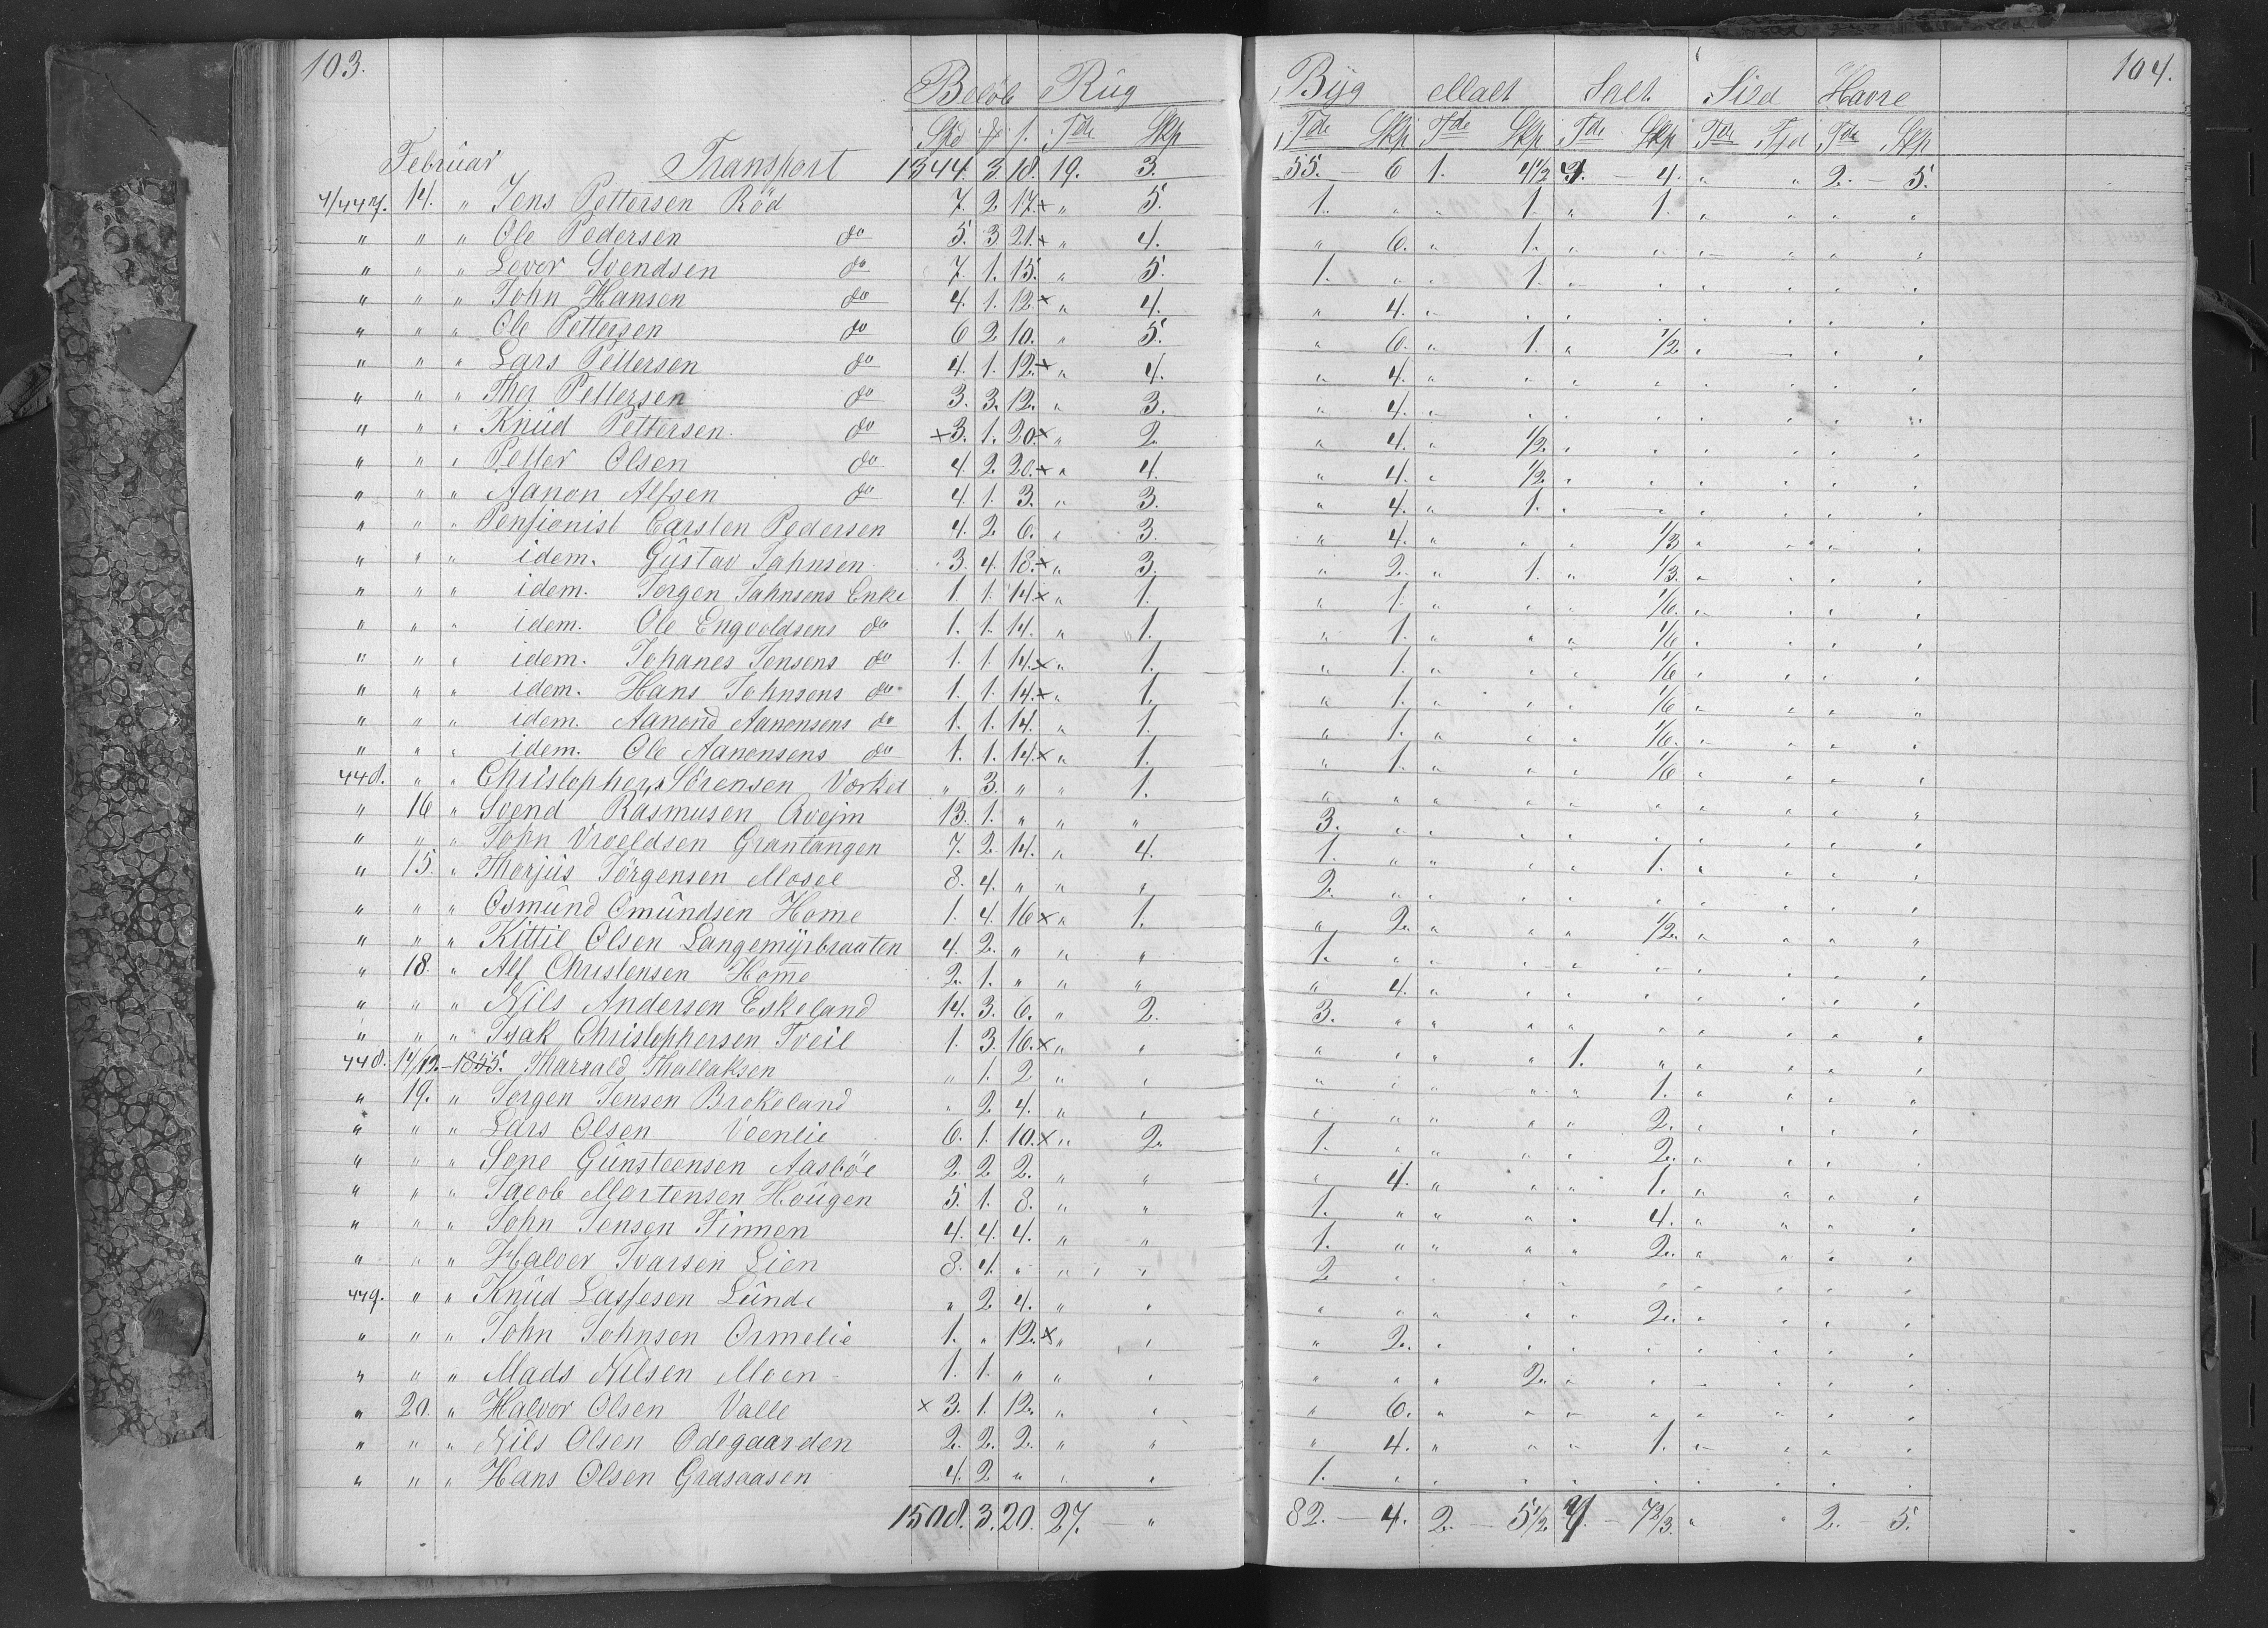 103.
Beløb Rüg
Spd # s. Tde Skp
Februar Transport 1344. 3 18. 19. 3.
4/447. 14. " Jens Pettersen Röd 7. 2 17.x " 5.
" " " Ole Pedersen do 5. 3 21.x " 4.
" " " Levor Svendsen do 7. 1. 15. " 5.
" " " John Hansen do 4. 1. 12.x " 4.
" " " Ole Pettersen do 6 2 10. " 5.
" " " Lars Pettersen do 4. 1. 12.x " 4.
" " " Ther Pettersen do 3. 3. 12. " 3.
" " " Knüd Pettersen do x3. 1. 20.x " 2.
" " " Petter Olsen do 4 2. 20.x " 4.
" " " Aanon Alfsen do 4. 1. 3. " 3.
" " " Pensionist Carsten Pedersen 4. 2 6. " 3.
" " " idem. Güstav Jahnsen 3. 4. 18.x " 3.
" " " idem. Jorgen Jahnsens Enke 1. 1. 14.x " 1.
" " " idem. Ole Engvoldsens do 1. 1. 14. " 1.
" " " idem. Johanes Jensens do 1. 1. 14.x " 1.
" " " idem. Hans Johnsens do 1. 1. 14.x " 1.
" " " idem. Aanond Aanonsens do 1. 1. 14. " 1.
" " " idem. Ole Aanonsens do 1. 1. 14.x " 1.
448. " " Christopher Sörensen Vorket " 3. " " 1.
" 16 " Svend Rasmusen Qvejm 13. 1. " " "
" " " John Vroeldsen Grantangen 7. 2 14. " 4.
" 15. " Thorjüs Jörgensen Mosee 8. 4. " " "
" " " Osmünd Omündsen Home 1. 4. 16x " 1.
" " " Kittil Olsen Langemÿrbraaten 4. 2. " " "
" 18. " Alf Christensen Home 2. 1. " " "
" " " Nils Andersen Eskeland 14. 3. 6. " 2.
" " " Isak Christophersen Tveit 1. 3. 16.x " "
448. 14/12.-1855. Tharald Thallaksen " 1. 2 " "
" 19. " Jorgen Jensen Brekeland " 2 4. " "
" " " Lars Olsen Veenlie 6. 1. 10.x " 2.
" " " Sone Günsteensen Aasböe 2. 2 2. " "
" " " Jacob Mortensen Haügen 5. 1. 8. " "
" " " John Jensen Finnen 4. 4. 4. " "
" " " Halvor Ivarsen Lien 8. 4. " " "
449. " " Knüd Lassesen Lünde " 2 4. " "
" " " John Johnsen Ormelie 1. " 12.x " "
" " " Mads Nilsen Moen 1. 1. " " "
" 20. " Halvor Olsen Valle x 3. 1. 12. " "
" " " Nils Olsen Odegaarden 2. 2. 2. " "
" " " Hans Olsen Grasaasen 4. 2 " " "
1508. 3. 20. 27. — "
104.
Büg Malt Salt Sild Havre
Tde Skp Tde Skp Tde Skp Tde Fjd Tde Skp
55. — 6 1. 4½ 9. — 4. " " 2. — 5.
1. " " 1. " 1. " " " "
" 6. " 1. " " " " " "
1. " " 1. " " " " " "
" 4. " " " " " " " "
" 6. " 1. " 1/2 " " " "
" 4. " " " " " " " "
" 4. " " " " " " " "
" 4. " 1/2. " " " " " "
" 4. " 1/2. " " " " " "
" 4. " 1. " " " " " "
" 4. " " " 1/3 " " " "
" 2. " 1. " 1/3. " " " "
" 1. " " " 1/6. " " " "
" 1. " " " 1/6 " " " "
" 1. " " " 1/6 " " " "
" 1. " " " 1/6 " " " "
" 1. " " " 1/6. " " " "
" 1. " " " 1/6 " " " "
" " " " " " " " " "
3. " " " " " " " " "
1. " " " " 1. " " " "
2. " " " " " " " " "
" 2. " " " 1/2. " " " "
1. " " " " " " " " "
" 4. " " " " " " " "
3. " " " " " " " " "
" " " " 1. " " " " "
" " " " " 1. " " " "
" " " " " 2. " " " "
1. " " " " 2. " " " "
" 4. " " " 1. " " " "
1. " " " " 4. " " " "
1. " " " " 2. " " " "
2 " " " " " " " " "
" " " " " 2. " " " "
" 2. " " " " " " " "
" " " 2. " " " " " "
" 6. " " " " " " " "
" 4. " " " 1. " " " "
1. " " " " " " " " "
82. — 4. 2. — 5½ — 7 2/3. " " 2. — 5.